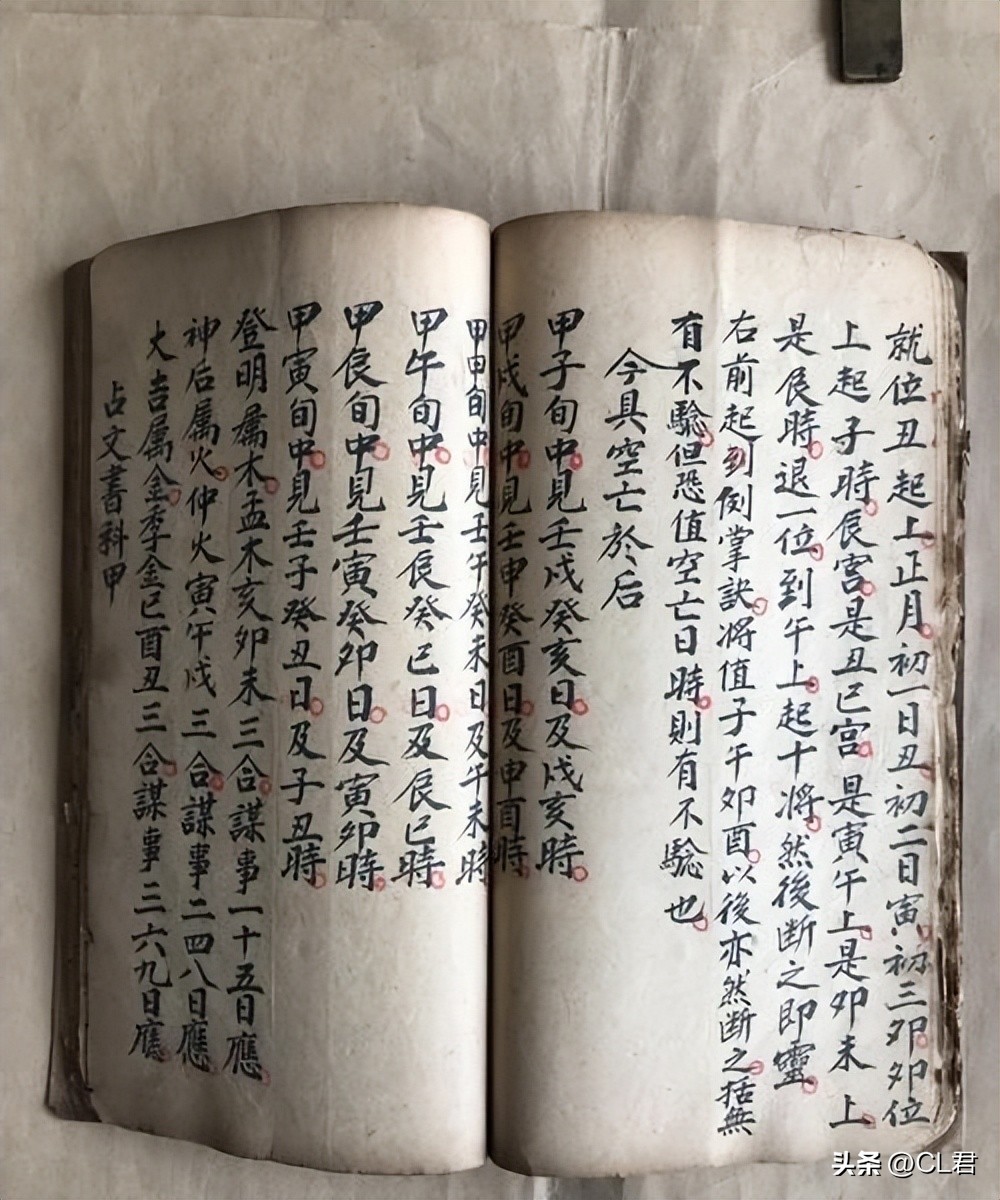 就位丑起上正月初一日丑初二日寅初三卯卯位
上起子時辰宮是丑巳宮是寅午上是卯未上
是辰時退一位到午上起十將然後断之即靈
右前起到例掌訣将值子午卯酉以後亦然断之括無
有不騐但恐值空亡日時則有不騐也
今具空亡於后
甲子旬中見壬戌癸亥日及戌亥時
甲戌旬中見壬申癸酉日及申酉時
甲申旬中見壬午癸未日及午未時
甲午旬中見壬辰癸巳日及辰巳時
甲辰旬中見壬寅癸卯日及寅卯時
甲寅旬中見壬子癸丑日及子丑時
登明属木孟木亥卯未三合謀事一十五日應
神后属火仲火寅午戌三合謀事二四八日應
大吉属金季金巳酉丑三合謀事三六九日應
占文書科甲
头条 @CL君